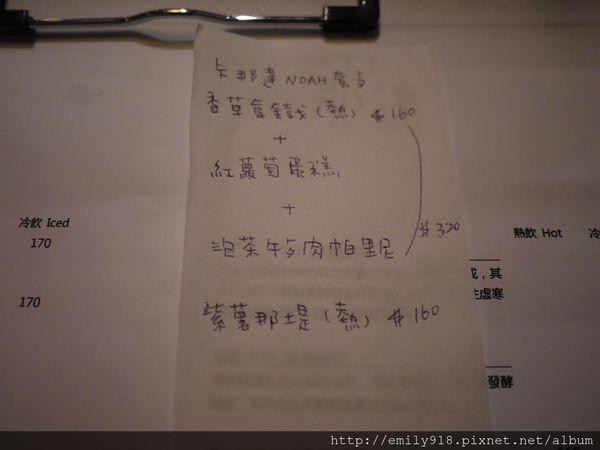 卡那達 NOAH
香草拿鐵(熱) $160
+
紅蘿蔔蛋糕
+
泡菜牛肉帕里尼
$320
紫薯那堤(熱) $160
冷飲 Iced
170
170
熱飲 Hot
冷
或，其
虛寒
發酵
http://emily918.pixnet.net/album